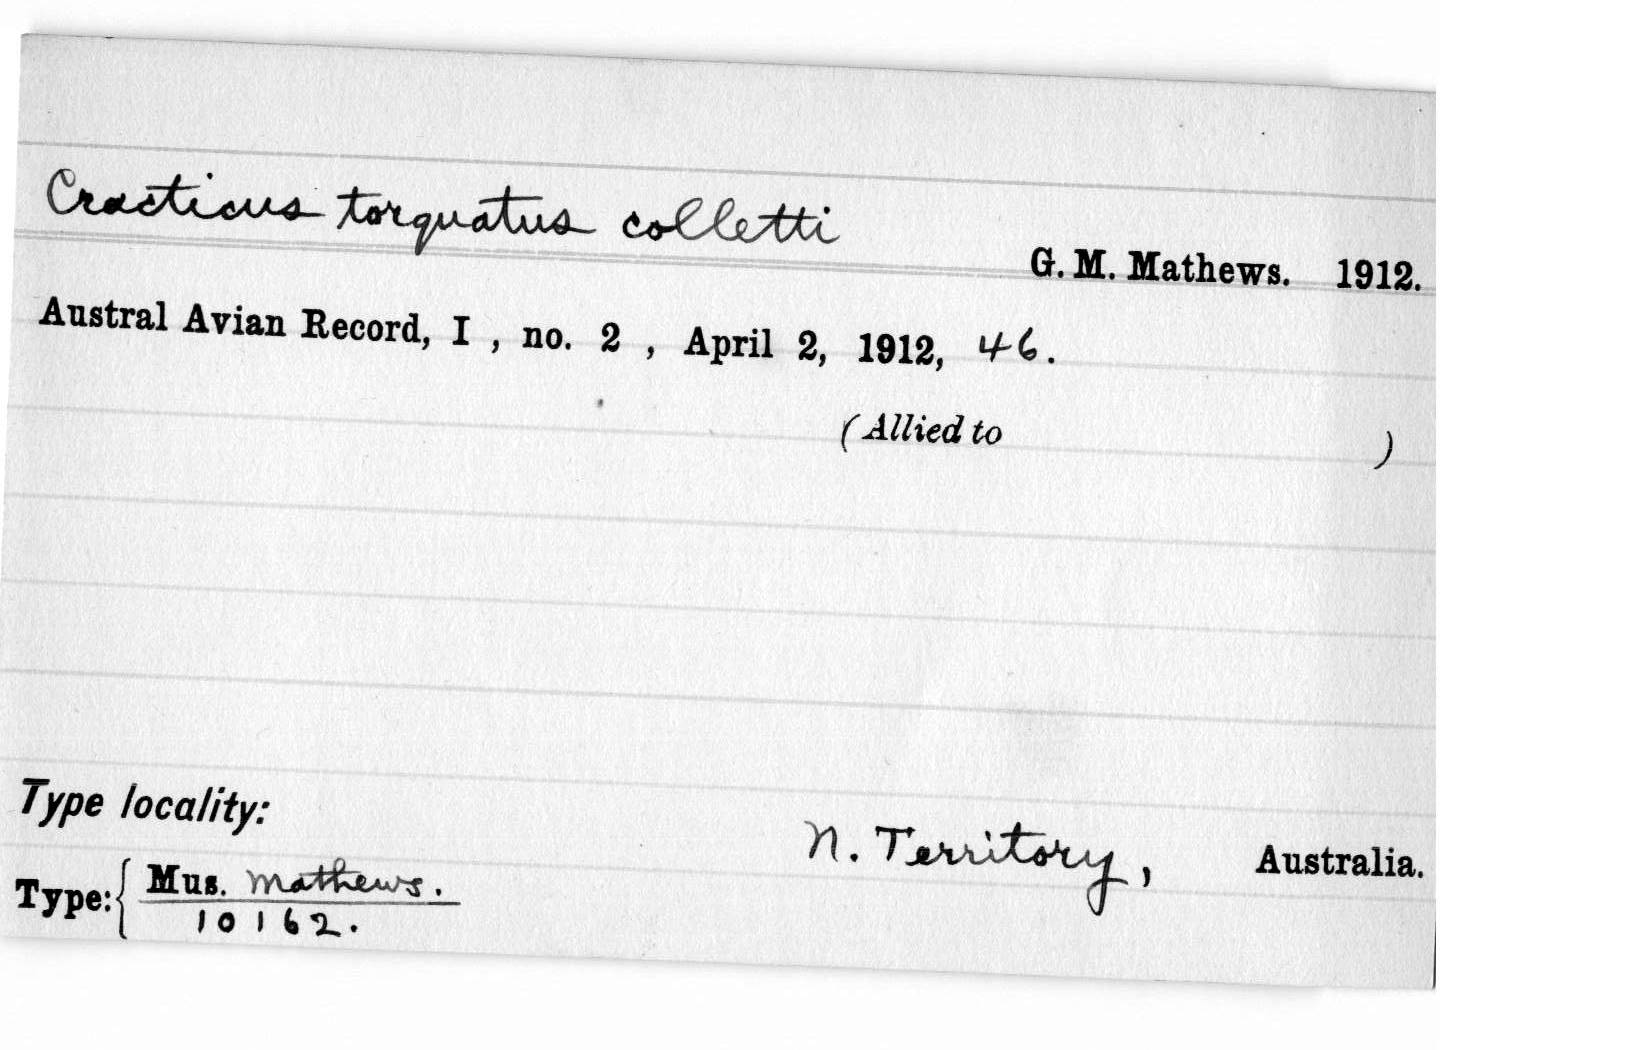 Cracticus torquatus colletti
G. M. Mathews. 1912.
Austral Avian Record, I , no. 2 , April 2, 1912, 46.
(Allied to )
Type locality:
N. Territory, Australia.
Type: { Mus. Mathews.
10162.